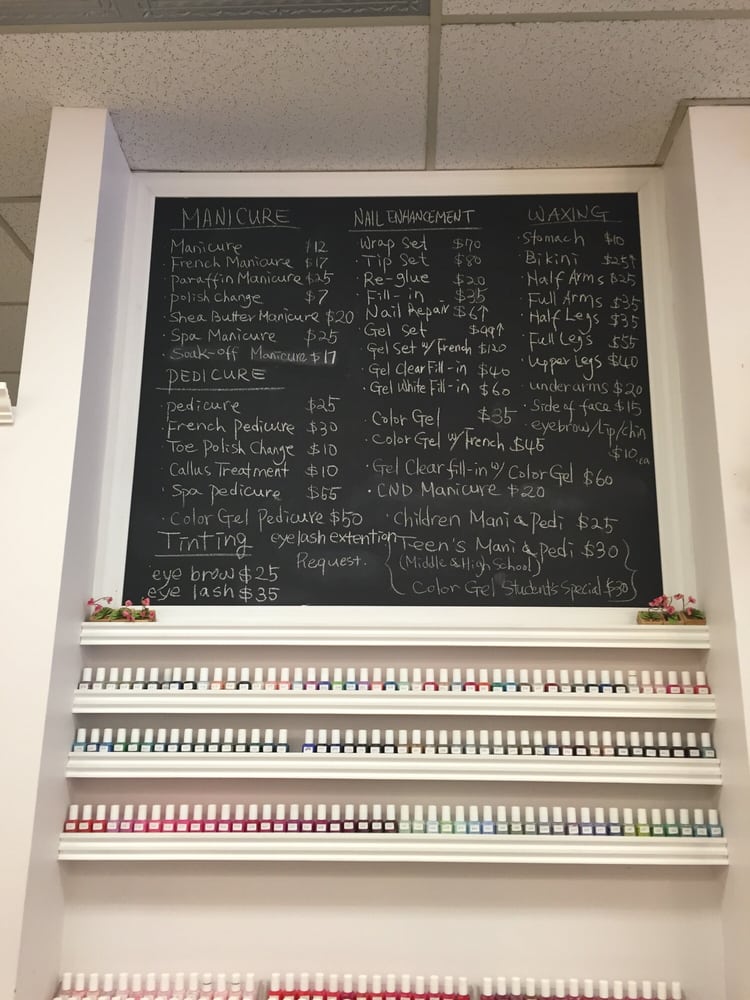 MANICURE
Manicure $12
French Manicure $17
paraffin Manicure $25
polish Change $7
Shea Butter Manicure $20
Spa Manicure $25
Soak-off Manicure $17
PEDICURE
pedicure $25
French Pedicure $30
Toe Polish Change $10
Callus Treatment $10
Spa pedicure $55
Color Gel Pedicure $50
Tinting
eye brow $25
eye lash $35
eyelash extention
Request.
NAIL ENHANCEMENT
Wrap Set $70
Tip Set $80
Re-glue $20
Fill-in $35
Nail Repair $6↑
Gel Set $99↑
Gel Set w/ French $120
Gel Clear Fill-in $40
Gel White Fill-in $60
Color Gel $35
Color Gel w/ French $45
Gel Clear fill-in w/ Color Gel $60
CND Manicure $20
Children Mani & Pedi $25
Teen's Mani & pedi $30
(Middle & High School)
Color Gel Student's Special $30
WAXING
Stomach $10
Bikini $25↑
Half Arms $25
Full Arms $35
Half Legs $35
Full Legs $55
Upper Legs $40
underarms $20
Side of face $15
eyebrow/Lip/chin
$10.ea